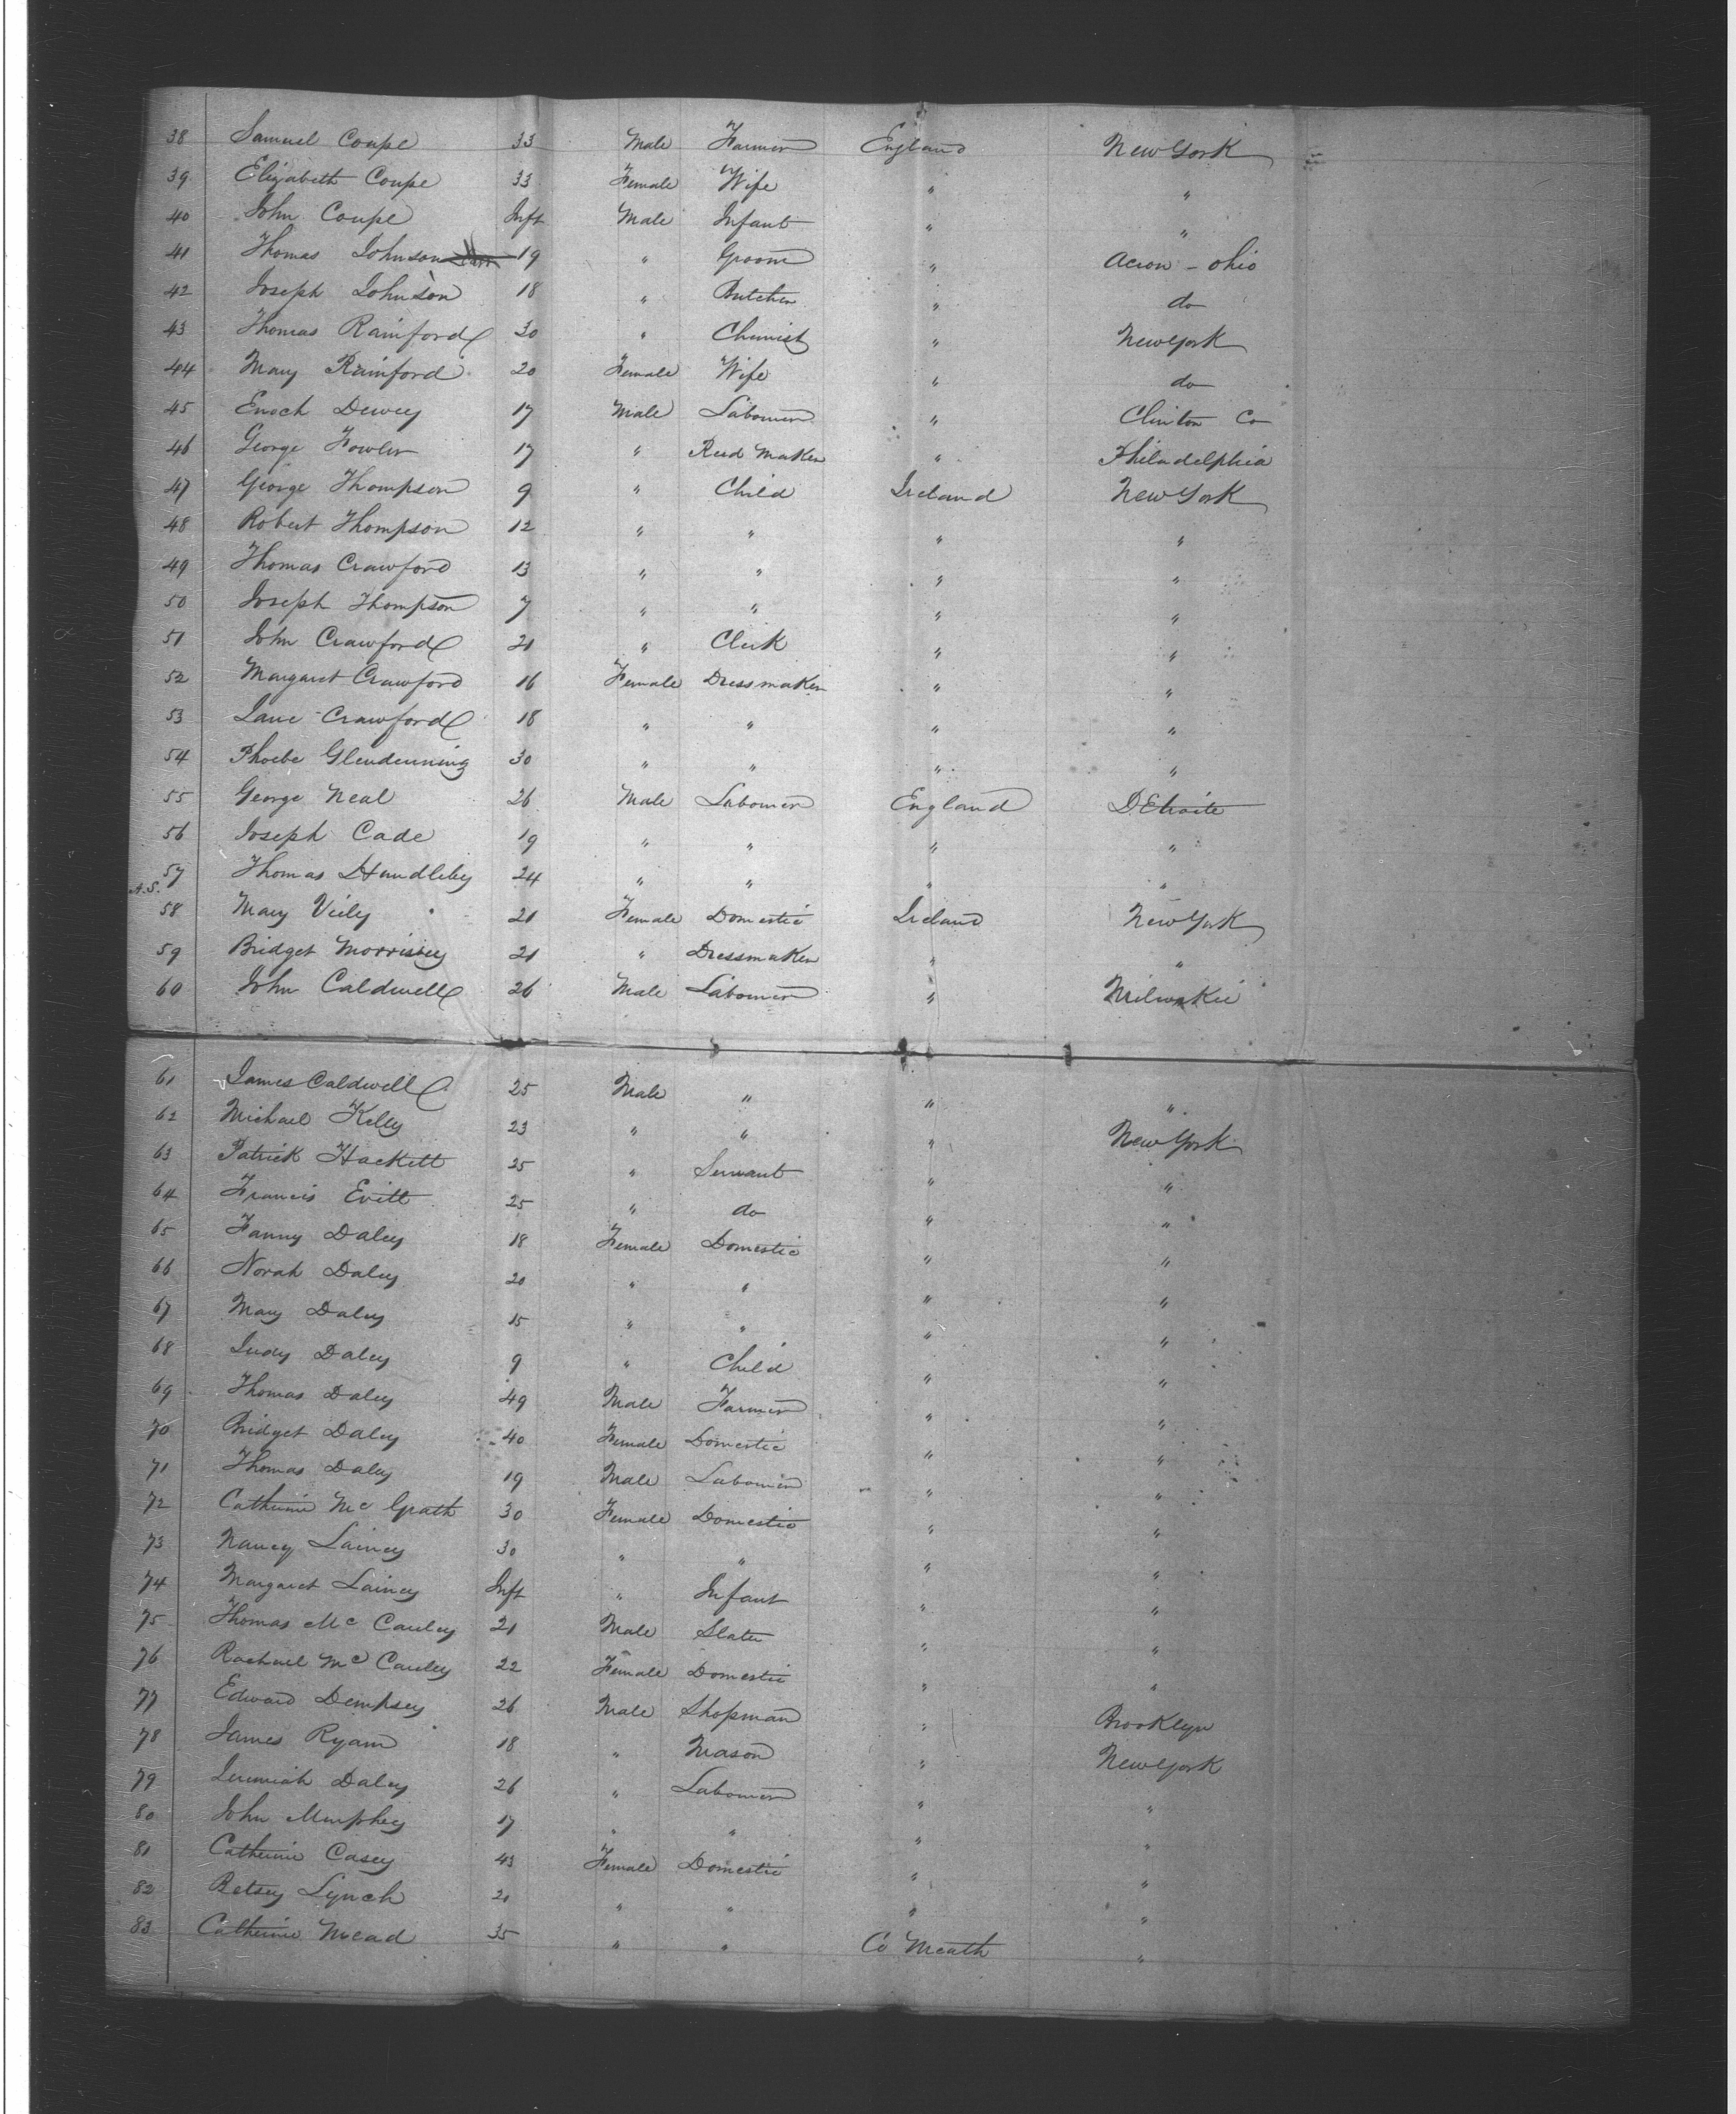 38 Samuel Coupe 33 Male Farmer England New York
39 Elizabeth Coupe 33 Female Wife " "
40 John Coupe Inft Male Infant " "
41 Thomas Johnson 19 " Groom " Acron - Ohio
42 Joseph Johnson 18 " Butcher " do
43 Thomas Rainford 30 " Chemist " New York
44 Mary Rainford 20 Female Wife " do
45 Enoch Dewey 17 Male Labourer " Clinton Co
46 George Fowler 17 " Reed Maker " Philadelphia
47 George Thompson 9 " Child Ireland New York
48 Robert Thompson 12 " " " "
49 Thomas Crawford 13 " " " "
50 Joseph Thompson 7 " " " "
51 John Crawford 21 " Clerk " "
52 Margaret Crawford 16 Female Dressmaker " "
53 Jane Crawford 18 " " " "
54 Phoebe Glendenning 30 " " " "
55 George Neal 26 Male Labourer England DEtroite
56 Joseph Cade 19 " " " "
57 Thomas Hundleby 24 " " " "
A.S.
58 Mary Viely 21 Female Domestic Ireland New York
59 Bridget Morrisey 21 " Dressmaker " "
60 John Caldwell 26 Male Labourer " Milwakie
61 James Caldwell 25 Male " " "
62 Michael Kelly 23 " " " New York
63 Patrick Hackett 25 " Servant " "
64 Francis Evitt 25 " do " "
65 Fanny Daley 18 Female Domestic " "
66 Norah Daley 20 " " " "
67 Mary Daley 15 " " " "
68 Judy Daley 9 " Child " "
69 Thomas Daley 49 Male Farmer " "
70 Bridget Daley 40 Female Domestic " "
71 Thomas Daley 19 Male Labourer " "
72 Catherine Mc Grath 30 Female Domestic " "
73 Nancy Lainey 30 " " " "
74 Margaret Lainey Inft " Infant " "
75 Thomas Mc Cauley 21 Male Slater " "
76 Rachael Mc Cauley 22 Female Domestic " "
77 Edward Dempsey 26 Male Shopman " Brooklyn
78 James Ryam 18 " Mason " New York
79 Jeremiah Daley 26 " Labourer " "
80 John Murphey 17 " " " "
81 Catherine Casey 43 Female Domestic " "
82 Betsey Lynch 21 " " " "
83 Catherine Mead 35 " " Co Meath "